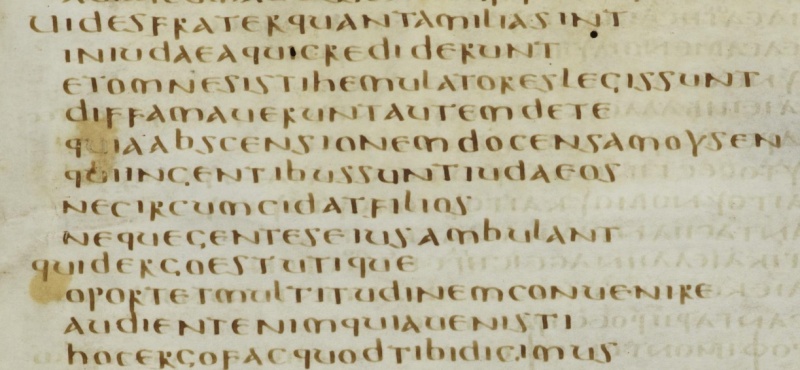 uidesfraterquantamiliasint
iniudaeaquicrediderunt
etomnesistihemulatoreslegissunt
diffamaueruntautemdete
quiaabscensionemdocensamoysen
quiingentibussuntiudaeos
necircumcidatfilios
nequegenteseiusambulant
quidergoestutique
oportetmultitudinemconuenire
audientenimquiauenisti
hocergofacquodtibidicimus